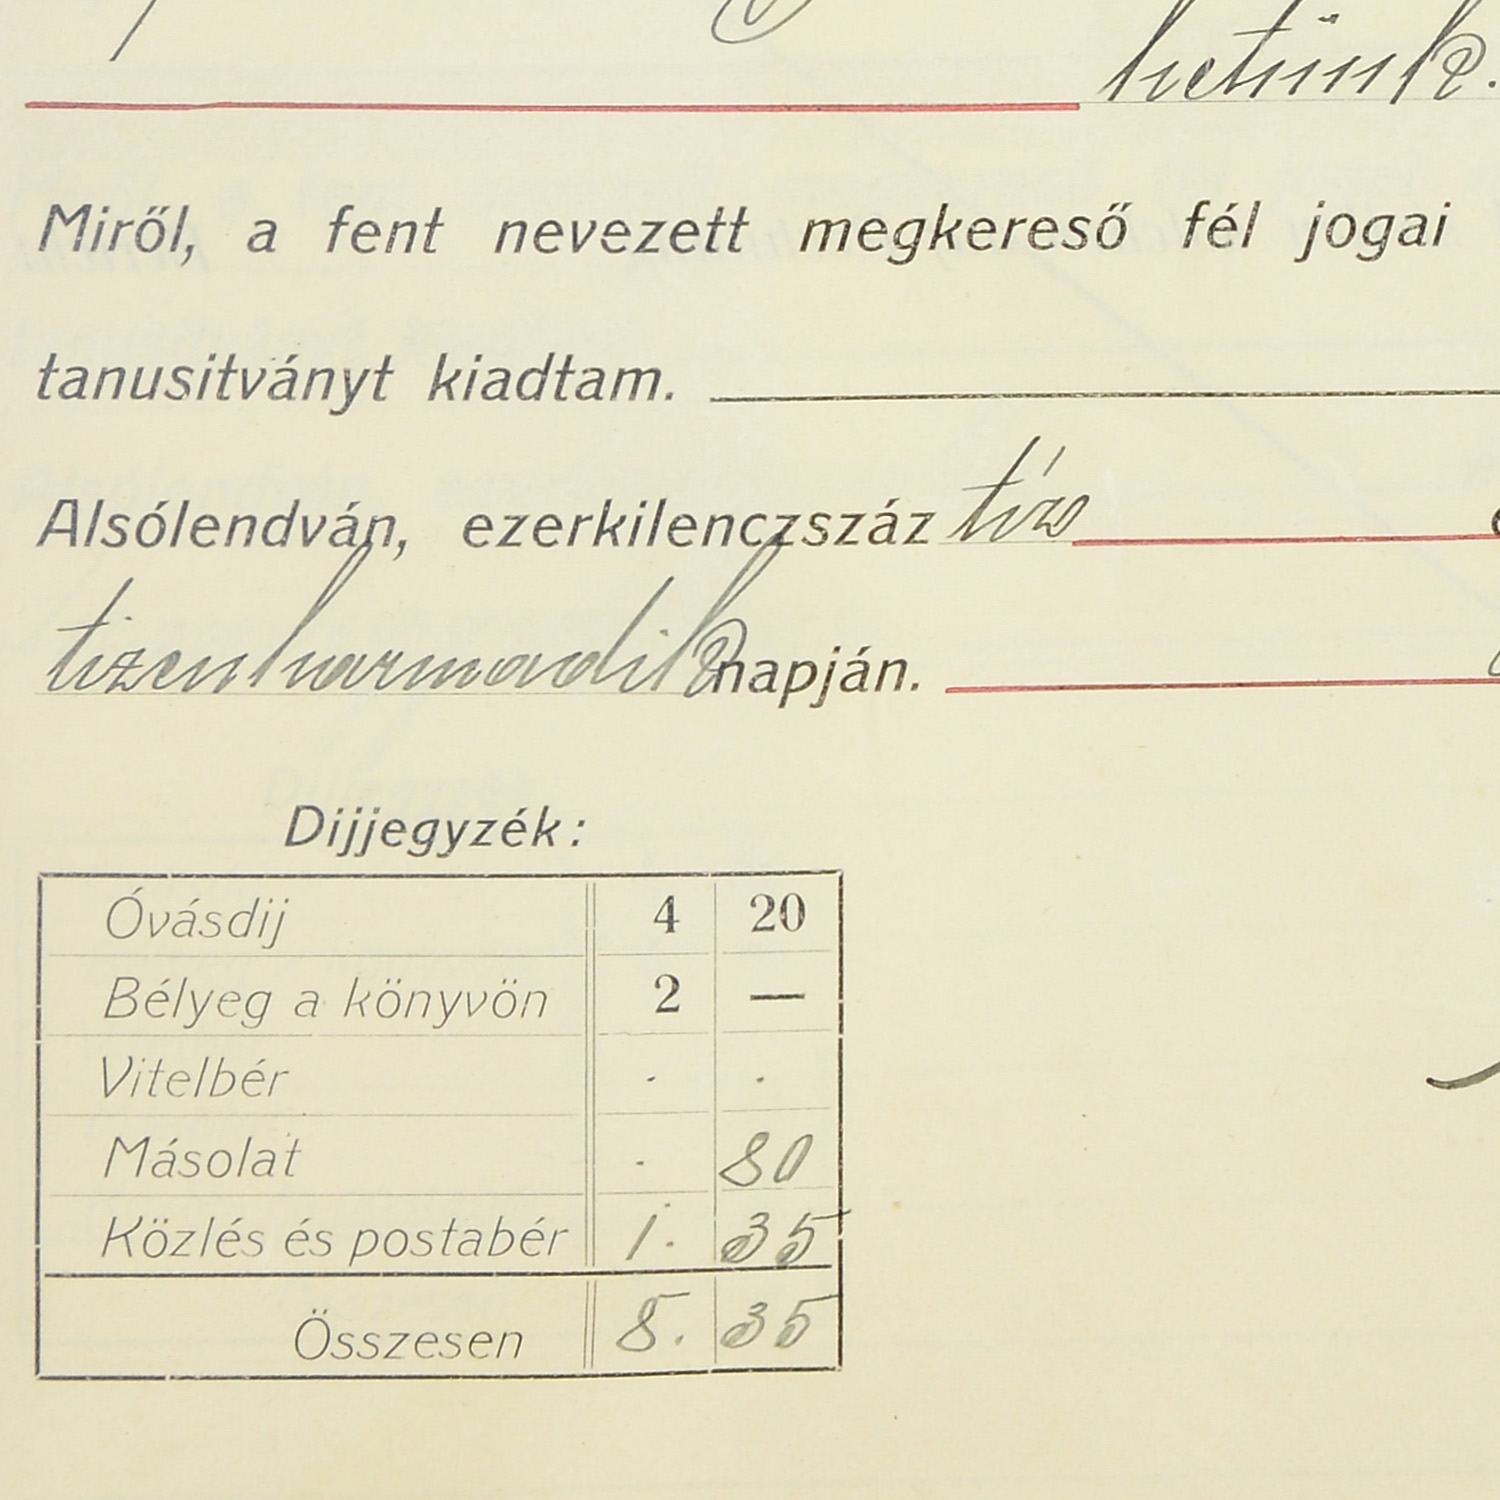 hetünk.
Miről, a fent nevezett megkereső fél jogai
tanusitványt kiadtam.
Alsólendván, ezerkilenczszáz tíz
tizenharmadik napján.
Dijjegyzék:
Óvásdij 4 20
Bélyeg a könyvön 2 —
Vitelbér . .
Másolat . 80
Közlés és postabér 1. 35
Összesen 8. 35